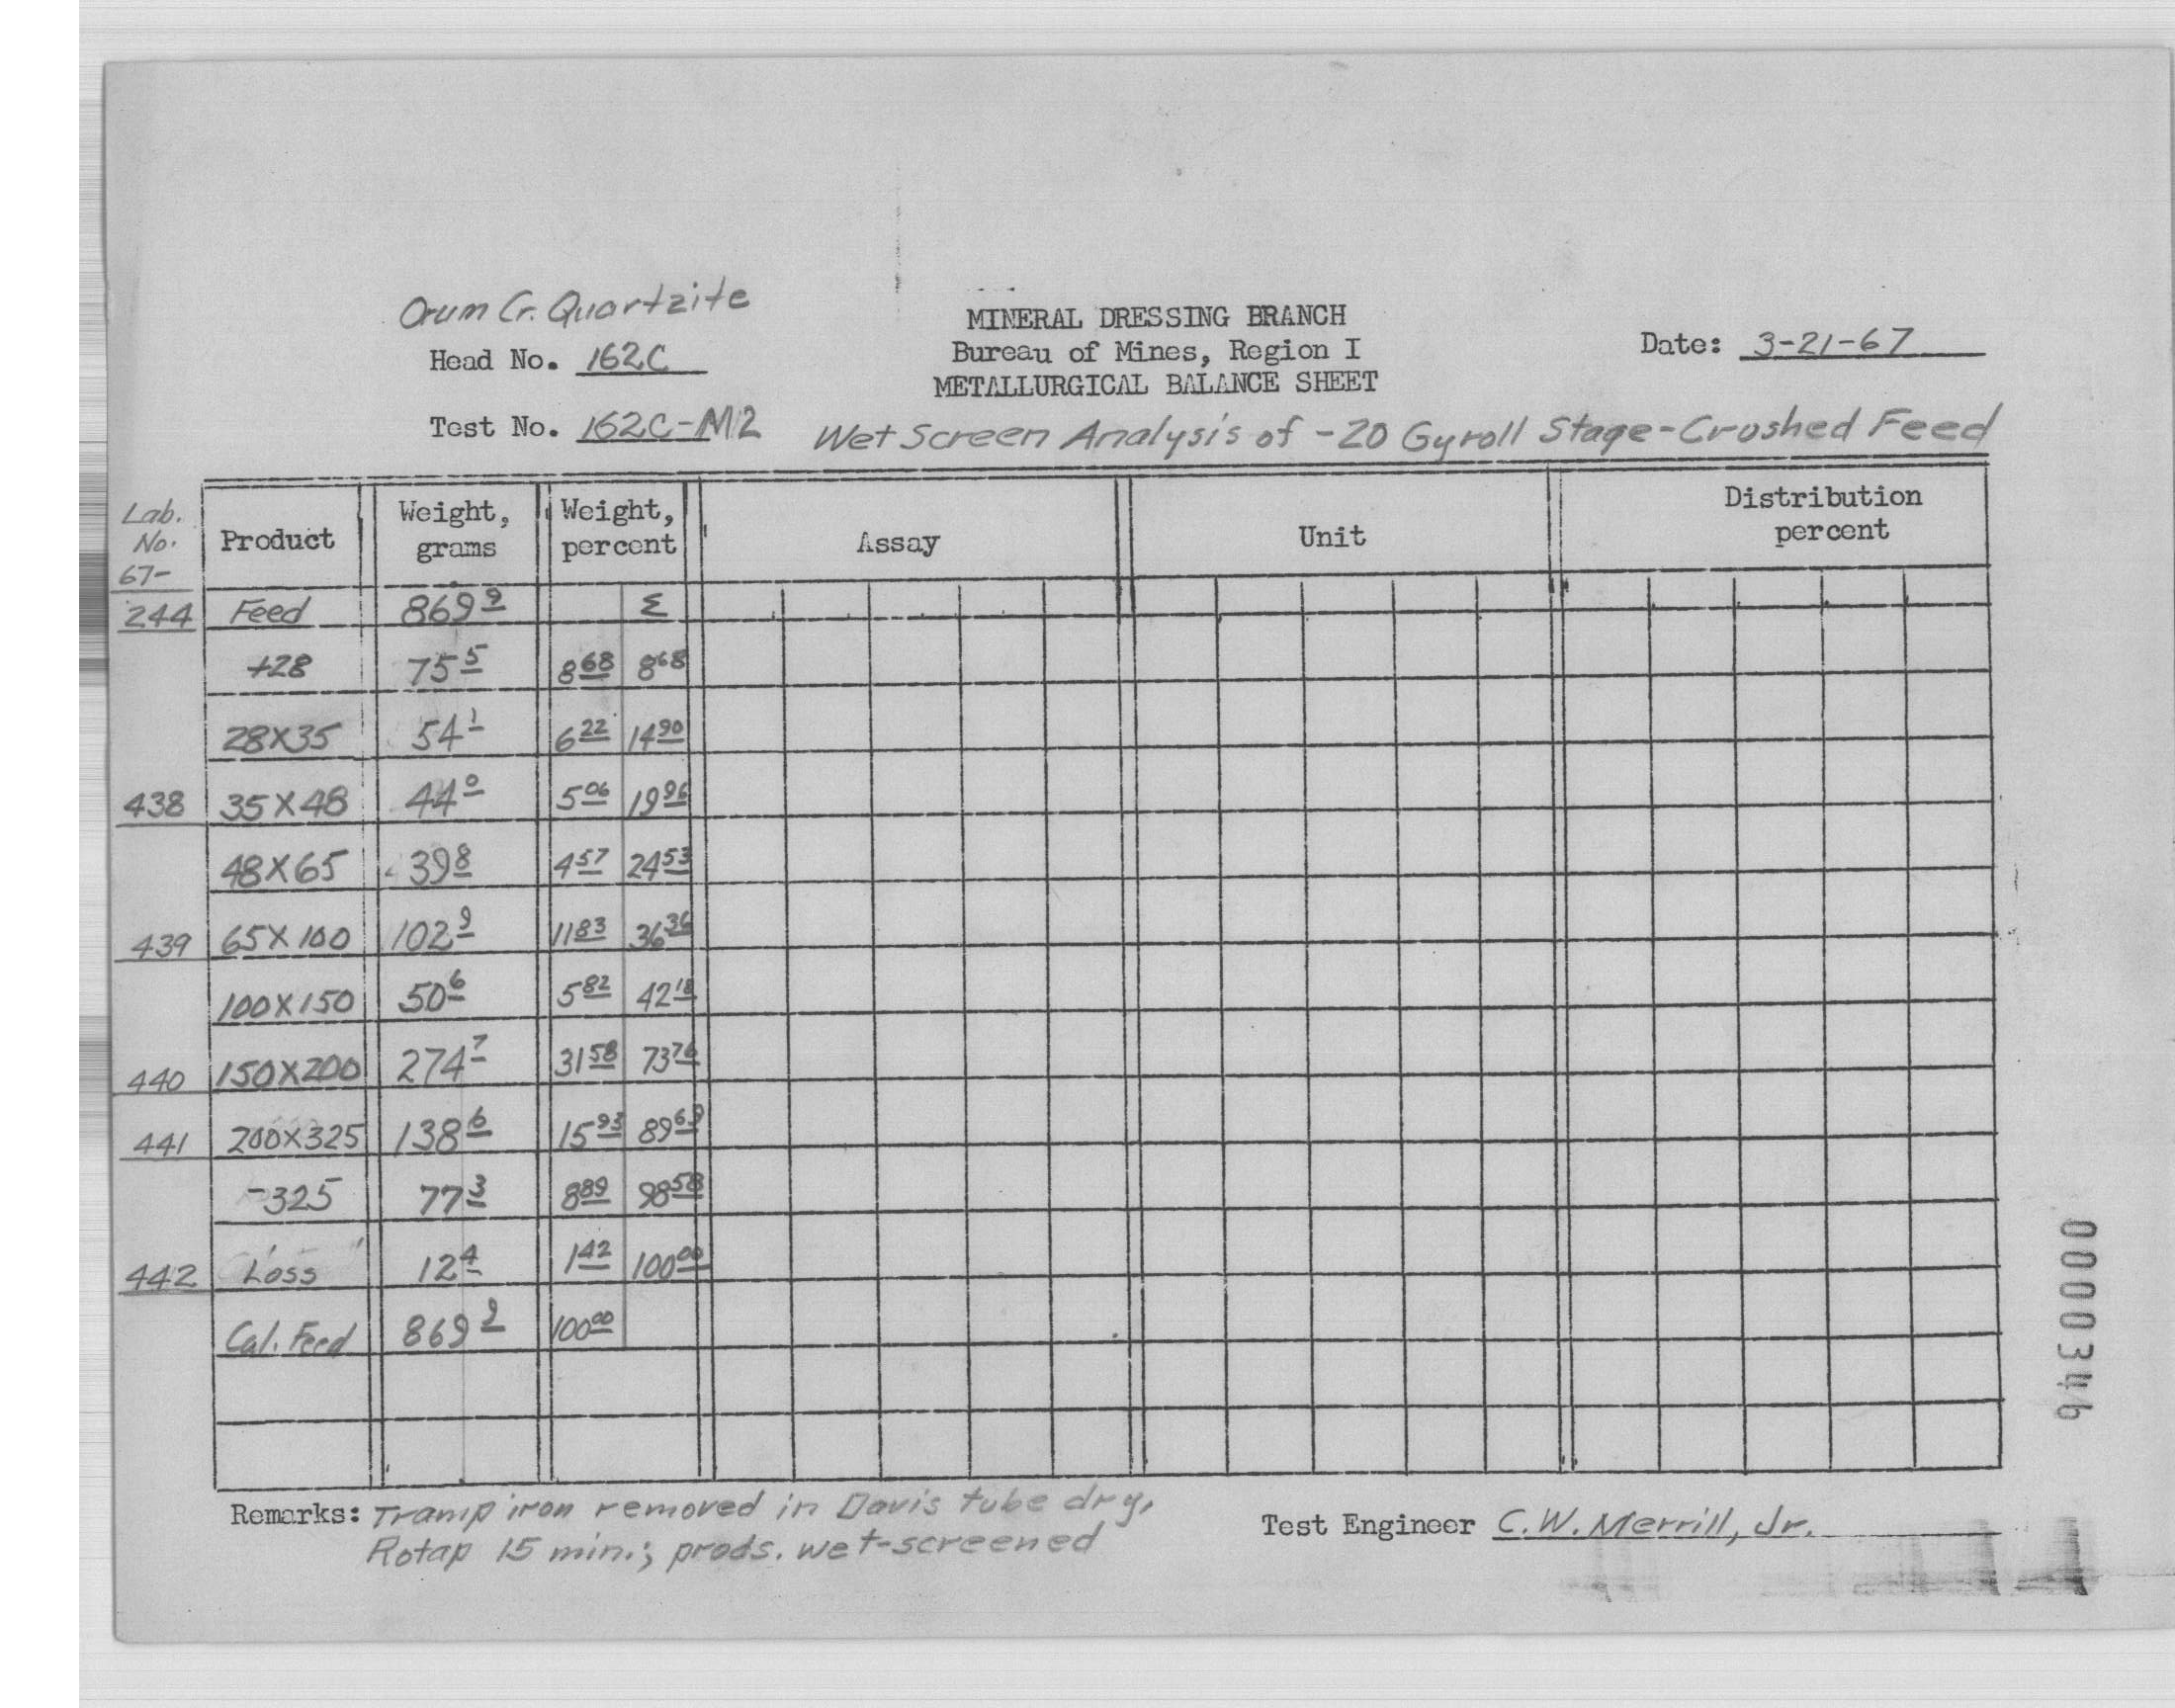 Orum Cr. Quartzite
Head No. 162C
Test No. 162C-M2
MINERAL DRESSING BRANCH
Bureau of Mines, Region I
METALLURGICAL BALANCE SHEET
Date: 3-21-67
Wet Screen Analysis of -20 Gyroll Stage-Crushed Feed
Lab. No. 67- Product Weight, grams Weight, percent Assay Unit Distribution percent
244 Feed 869.9 Σ
+28 75.5 8.68 8.68
28X35 54.1 6.22 14.90
438 35X48 44.0 5.06 19.96
48X65 39.8 4.57 24.53
439 65X100 102.9 11.83 36.36
100X150 50.6 5.82 42.18
440 150X200 274.7 31.58 73.76
441 200X325 138.6 15.93 89.69
-325 77.3 8.89 98.58
442 Loss 12.4 1.42 100.00
Cal. Feed 869.9 100.00
Remarks: Tramp iron removed in Davis tube dry,
Rotap 15 min.; prods. wet-screened
Test Engineer C.W. Merrill, Jr.
0000346